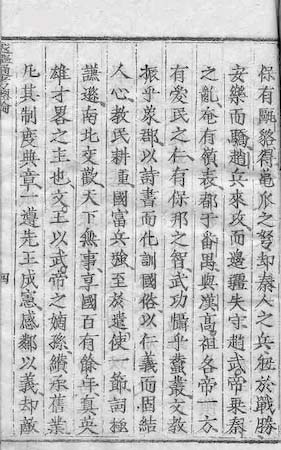 保有甌貉得龜爪之弩却秦人之兵狃於戰勝
安樂而驕趙兵來攻而邊疆失守趙武帝乗秦
之亂奄有嶺表都于番禺與漢高祖各帝一方
有愛民之仁有保邦之智武功慴乎蠶叢文教
振乎象郡以詩書而化訓國俗以仁義而固結
人心教民耕種國富兵強至於遣使一節詞極
謙遜南北交歡天下無事享國百有餘年真英
雄才畧之主也文王以武帝之嫡孫纘承舊業
凡其制度典章一遵先王成憲感鄰以義却敵
四